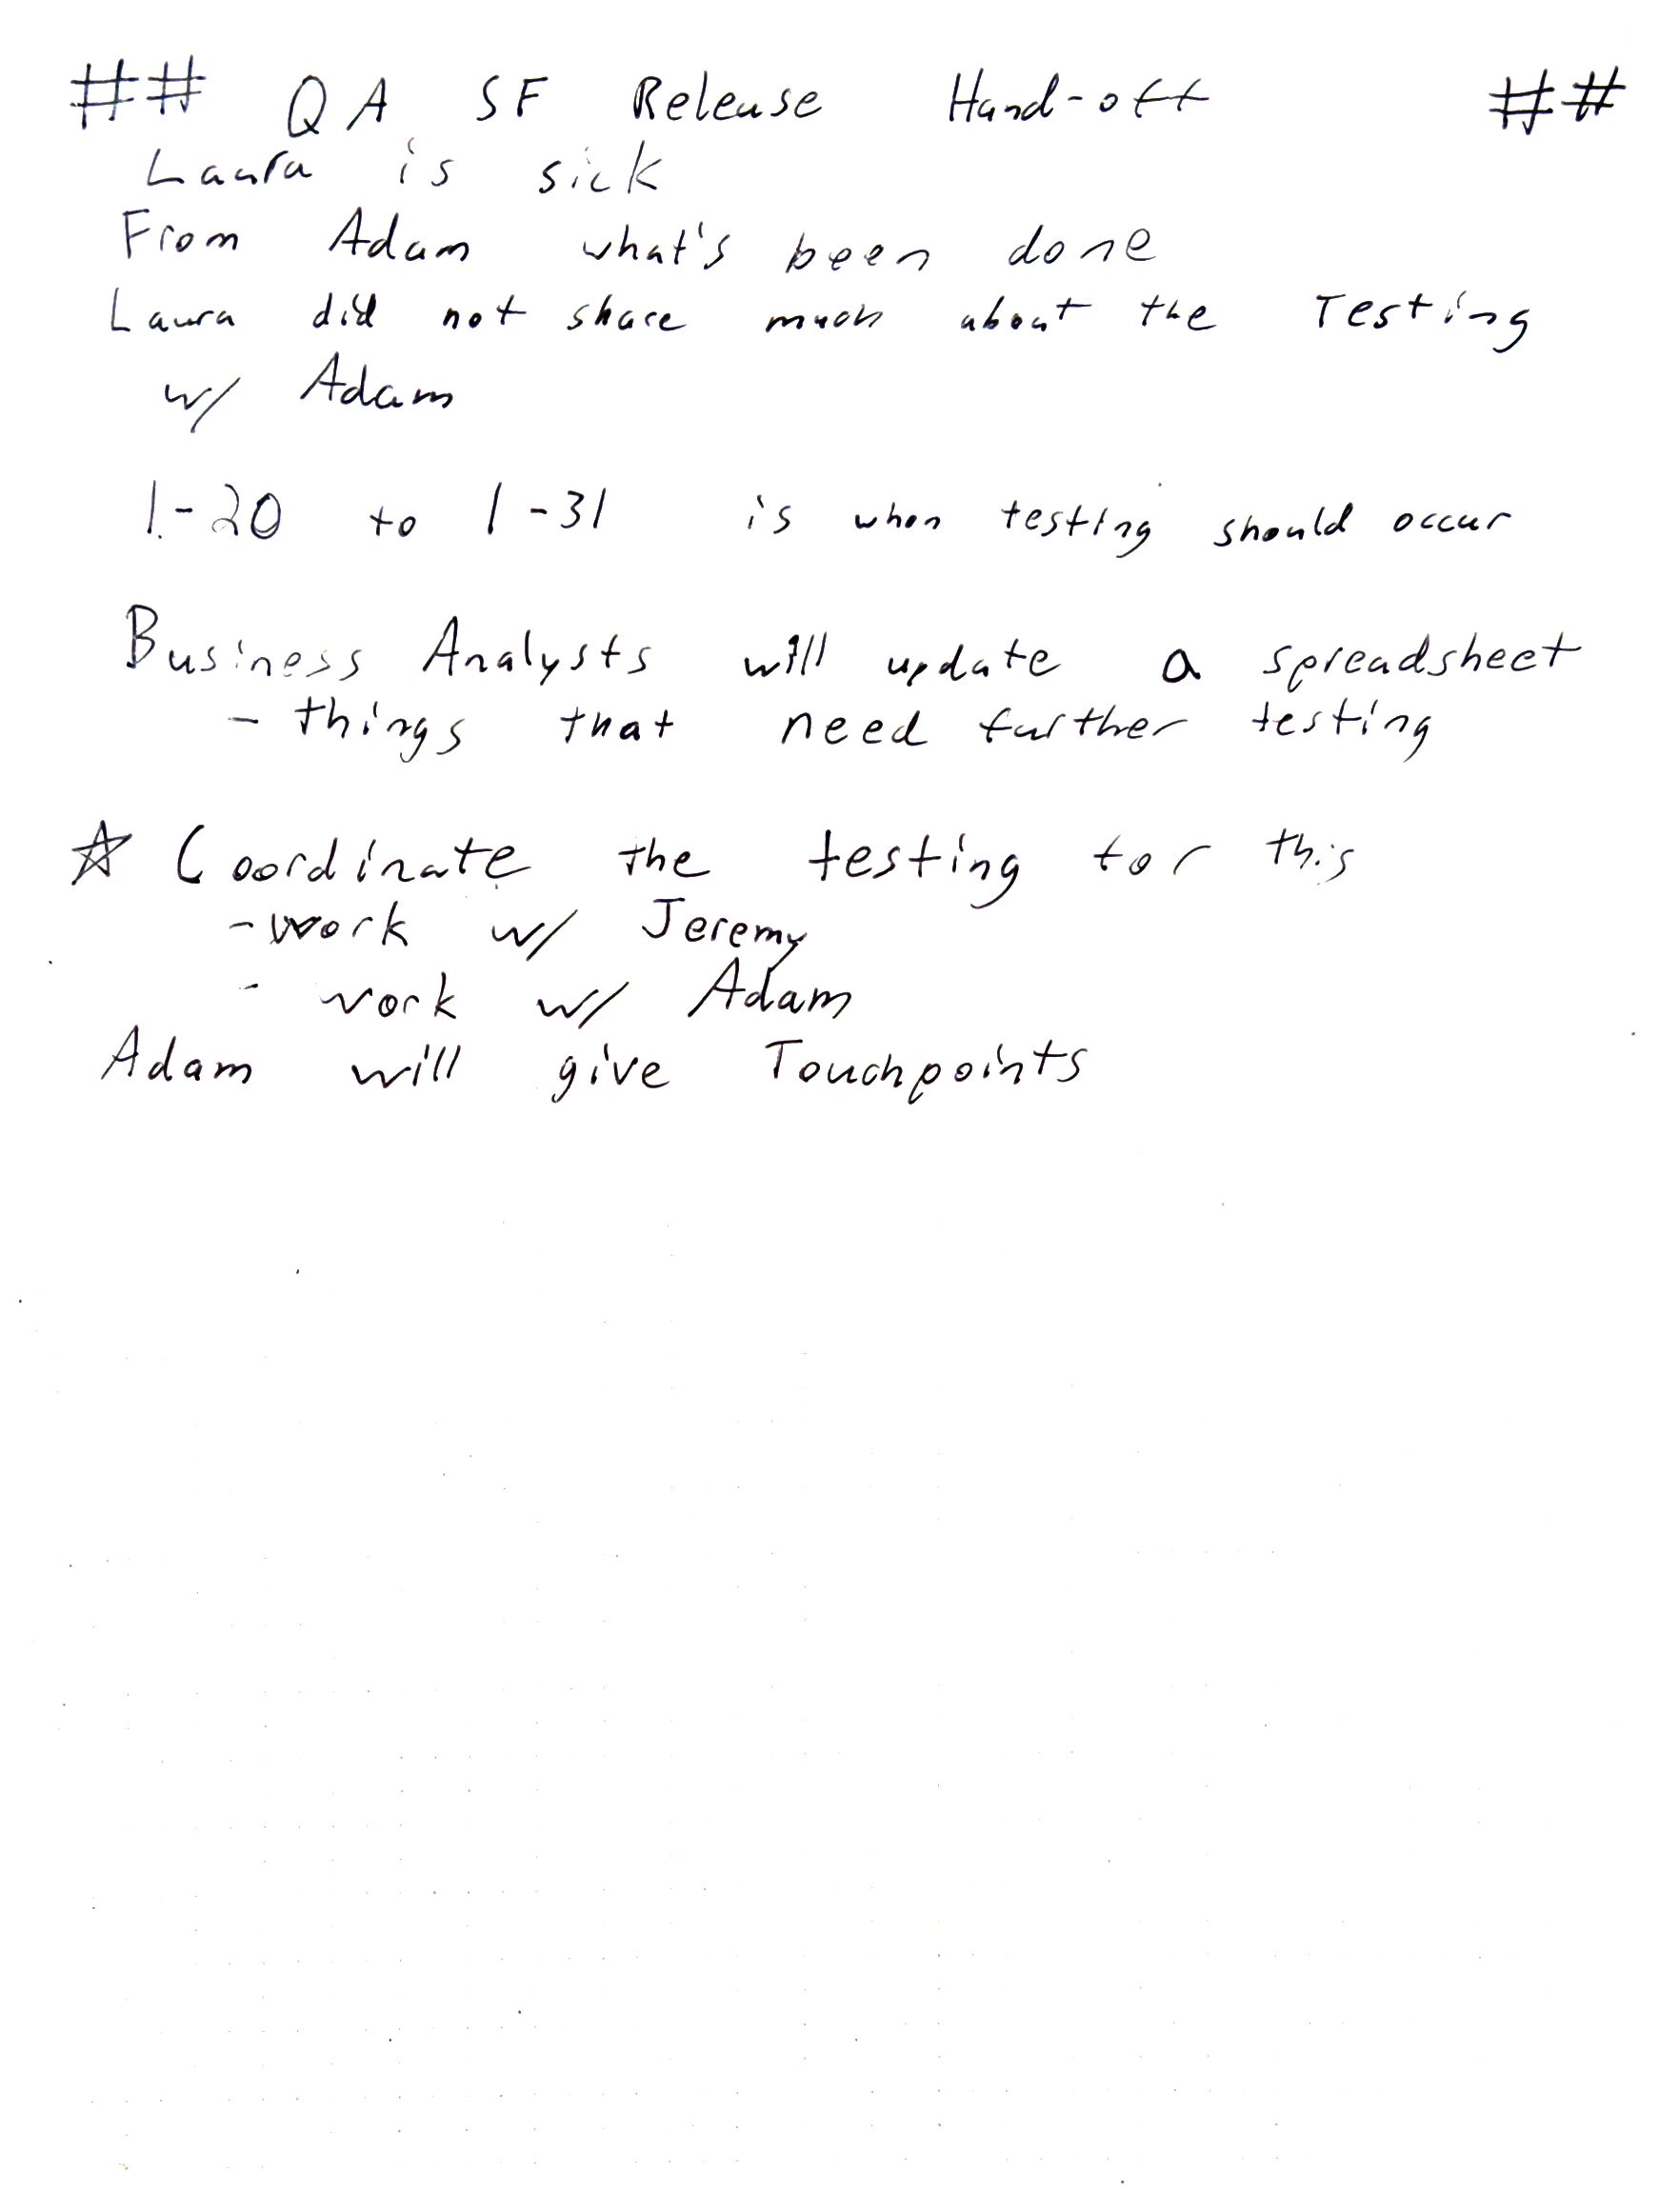 ## QA SF Release Hand-off ##
Laura is sick
From Adam what's been done
Laura did not share much about the Testing
w/ Adam
1-20 to 1-31 is when testing should occur
Business Analysts will update a spreadsheet
- things that need further testing
☆ Coordinate the testing for this
- work w/ Jeremy
- work w/ Adam
Adam will give Touchpoints